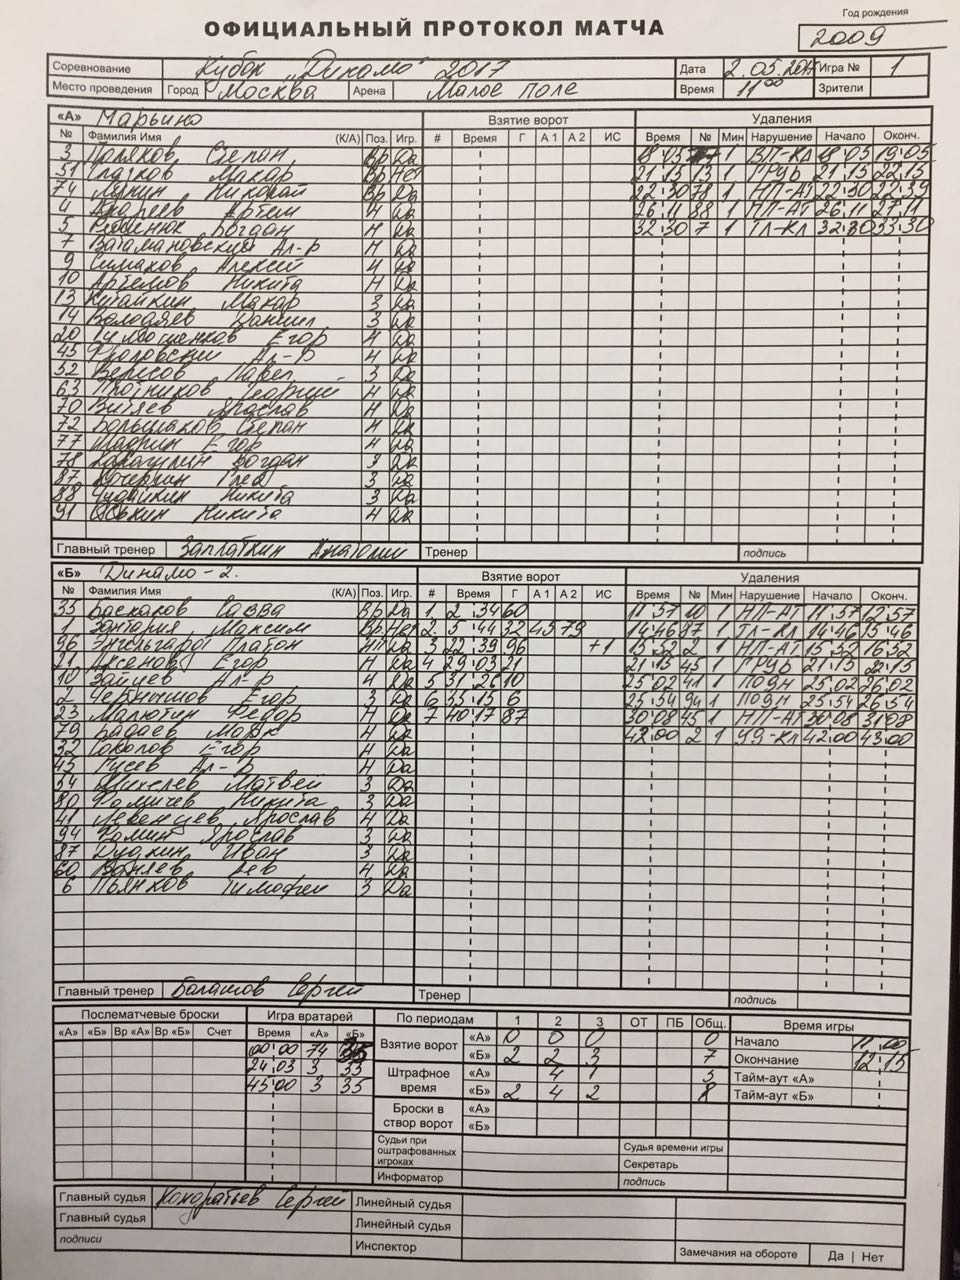 Год рождения
ОФИЦИАЛЬНЫЙ ПРОТОКОЛ МАТЧА 2009
Соревнование Кубок „Динамо" 2017 Дата 2.05.2017 Игра № 1
Место проведения Город Москва Арена Малое поле Время 11 00 Зрители
«А» Марьино Взятие ворот Удаления
№ Фамилия Имя (К/А) Поз. Игр. # Время Г А 1 А 2 ИС Время № Мин Нарушение Начало Оконч.
3 Поляков Степан Вр Да 18:05 1 ВП-Кл 18:05 19:05
51 Глачков Макар Вр Нет 21:15 13 1 ГРУБ 21:15 22:15
74 Лянин Николай Вр Да 22:30 78 1 НП-АТ 22:30 22:39
4 Андреев Артем Н Да 26:11 88 1 НП-АТ 26:11 27:11
5 Богдан Н Да 32:30 7 1 32:30 33:30
7 Ватамановский Ал-р Н Да
9 Симаков Алексей Н Да
10 Артемов Никита Н Да
13 Кутайкин Макар З Да
14 Володяев Даниил З Да
20 Егор Н Да
45 Фроловский Ал-р Н Да
52 Вересов Павел З Да
63 Плотников Георгий Н Да
70 Витяев Ярослав Н Да
72 Большаков Степан Н Да
77 Шадрин Егор Н Да
78 Богдан З Да
87 Кочергин Глеб З Да
88 Чудайкин Никита З Да
91 Никита Н Да
Главный тренер Заплаткин Анатолий Тренер подпись
«Б» Динамо-2. Взятие ворот Удаления
№ Фамилия Имя (К/А) Поз. Игр. # Время Г А 1 А 2 ИС Время № Мин Нарушение Начало Оконч.
35 Баскаков Савва Вр Да 1 2:34 60 11:57 10 1 НП-АТ 11:57 12:57
1 Максим Вр Нет 2 5:44 32 45 79 14:46 87 1 14:46 15:46
96 Энгельгардт Платон Да 3 22:39 96 +1 15:32 2 1 НП-АТ 15:32 16:32
21 Аксенов Егор Н Да 4 29:03 21 21:15 45 1 ГРУБ 21:15 22:15
10 Зайцев Ал-р Н Да 5 31:26 10 25:02 41 1 ПОДН 25:02 26:02
2 Чернышов Егор З Да 6 33:15 6 25:54 94 1 ПОДН 25:54 26:54
23 Малютин Федор Н Да 7 40:17 87 30:08 45 1 НП-АТ 30:08 31:08
79 Бадаев Марк Н Да 42:00 2 1 УД-КЛ 42:00 43:00
32 Соколов Егор Н Да
45 Гусев Ал-р Н Да
54 Матвей З Да
80 Фомичев Никита З Да
41 Левенцев Ярослав Н Да
94 Фомин Ярослав З Да
87 Дудкин Иван З Да
60 Лев Н Да
6 Пьянков Тимофей З Да
Главный тренер Балашов Сергей Тренер подпись
Послематчевые броски Игра вратарей По периодам 1 2 3 ОТ ПБ Общ. Время игры
«А» «Б» Вр «А» Вр «Б» Счет Время «А» «Б»
Взятие ворот «А» 0 0 0 0 Начало 11:00
00:00 74 35 «Б» 2 2 3 7 Окончание 12:15
24:03 3 35 Штрафное время «А» 4 1 5 Тайм-аут «А»
45:00 3 35 «Б» 2 4 2 8 Тайм-аут «Б»
Броски в створ ворот «А»
«Б»
Судьи при оштрафованных игроках Судья времени игры
Секретарь
Информатор подпись
Главный судья Кондратьев Сергей Линейный судья
Главный судья Линейный судья
подписи Инспектор Замечания на обороте Да | Нет